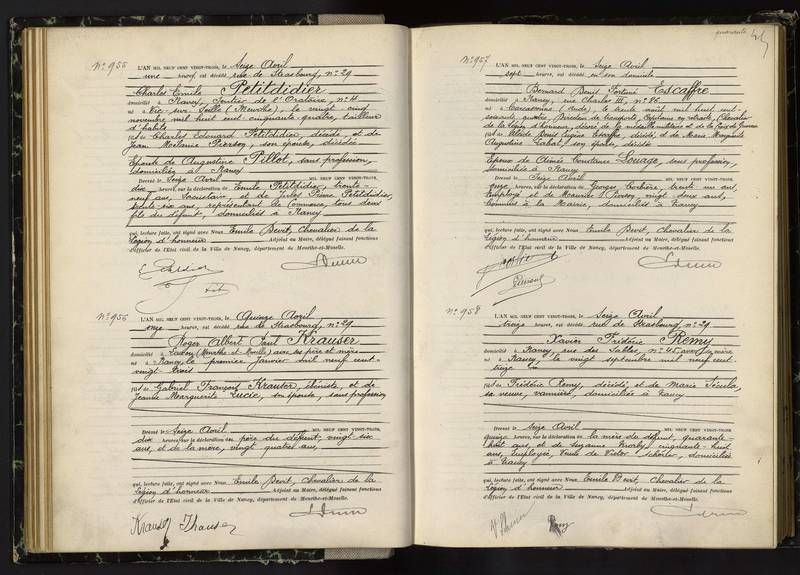 N° 955
L'AN MIL NEUF CENT VINGT-TROIS, le Seize Avril
une heure, est décédé rue de Strasbourg, n° 29
Charles Emile Petitdidier
domicilié à Nancy, Sentier de l'Oratoire, n° 4
né à Vic-sur-Seille (Meurthe), le vingt cinq
novembre mil huit cent cinquante quatre, tailleur
d'habits
fils de Charles Edouard Petitdidier, décédé, et de
Jeanne Mélanie Pierson, son épouse, décédée
Epoux de Augustine Pillot, sans profession,
domiciliée à Nancy
Dressé le Seize Avril MIL NEUF CENT VINGT-TROIS,
dix heures, sur la déclaration de Emile Petitdidier, trente-
neuf ans, et de Jules Pierre Petitdidier,
trente-six ans, représentant de commerce, tous deux
fils du défunt, domiciliés à Nancy
qui, lecture faite, ont signé avec Nous Emile Devit, Chevalier de la
Légion d'honneur Adjoint au Maire, délégué faisant fonctions
d'Officier de l'Etat civil de la Ville de Nancy, département de Meurthe-et-Moselle.
N° 956
L'AN MIL NEUF CENT VINGT-TROIS, le Quinze Avril
onze heures, est décédé rue de Strasbourg, n° 29
Roger Albert Paul Krauser
domicilié à (Meurthe-et-Moselle) avec ses père et mère
né à Nancy, le premier Janvier mil neuf cent-
vingt-trois
fils de Gabriel François Krauser, ébéniste, et de
Jeanne Marguerite Lucie, son épouse, sans profession
Dressé le Seize Avril MIL NEUF CENT VINGT-TROIS,
dix heures, sur la déclaration du père du défunt, vingt six
ans, et de la mère, vingt quatre ans,
qui, lecture faite, ont signé avec Nous Emile Devit, Chevalier de la
Légion d'honneur Adjoint au Maire, délégué faisant fonctions
d'Officier de l'Etat civil de la Ville de Nancy, département de Meurthe-et-Moselle.
Krauser Krauser
N° 957
L'AN MIL NEUF CENT VINGT-TROIS, le Seize Avril
sept heures, est décédé en son domicile
Bernard Benoit Fortuné Escaffre
domicilié à Nancy, rue Charles III, n° 86
né à Carcassonne (Aude), le trente août mil huit cent-
soixante quatre, Directeur de transports, Capitaine en retraite, Chevalier
de la Légion d'honneur, décoré de la médaille militaire et de la Croix de Guerre
fils de Escaffre, décédé, et de Marie Marguerite
Augustine Labat, son épouse, décédée
Epoux de Aimée Constance Louage, sans profession,
domiciliée à Nancy
Dressé le Seize Avril MIL NEUF CENT VINGT-TROIS,
onze heures, sur la déclaration de Georges Corbière, trente un ans,
employé, et de Maurice Pierson, vingt deux ans,
commis à la Mairie, domiciliés à Nancy
qui, lecture faite, ont signé avec Nous Emile Devit, Chevalier de la
Légion d'honneur Adjoint au Maire, délégué faisant fonctions
d'Officier de l'Etat civil de la Ville de Nancy, département de Meurthe-et-Moselle.
N° 958
L'AN MIL NEUF CENT VINGT-TROIS, le Seize Avril
treize heures, est décédé rue de Strasbourg n° 29
Xavier Frédéric Remy
domicilié à Nancy, rue des Sables, n° 45, avec sa mère
né à Nancy, le vingt septembre mil neuf cent
treize
fils de Frédéric Remy, décédé et de Marie
sa veuve, vannière, domiciliée à Nancy
Dressé le Seize Avril MIL NEUF CENT VINGT-TROIS,
quinze heures, sur la déclaration de la mère du défunt, quarante-
huit ans, et de Suzanne cinquante-huit
ans, employée, Veuve de Victor domiciliée
à Nancy
qui, lecture faite, ont signé avec Nous Emile Devit, Chevalier de la
Légion d'honneur Adjoint au Maire, délégué faisant fonctions
d'Officier de l'Etat civil de la Ville de Nancy, département de Meurthe-et-Moselle.
Remy